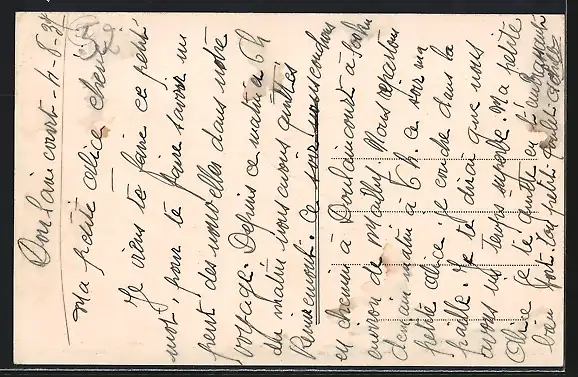 Doulaincourt - 4-8-34
Ma petite alice cherie
Je viens te faire ce petit
mot, pour te faire savoir un
peut des nouvelles dans notre
voyage. Depuis ce matin à 6h
du matin nous avions quittés
Remiremont. Ce soir nous
en chemin à Doulaincourt à
environ de Nous
demain matin à 6h. ce soir ma
petite alice je couche dans la
paille. Je te dirai que nous
avons un temps superbe. Ma petite
Alice je te quitte en t'embrassant
bien fort. Ton petit